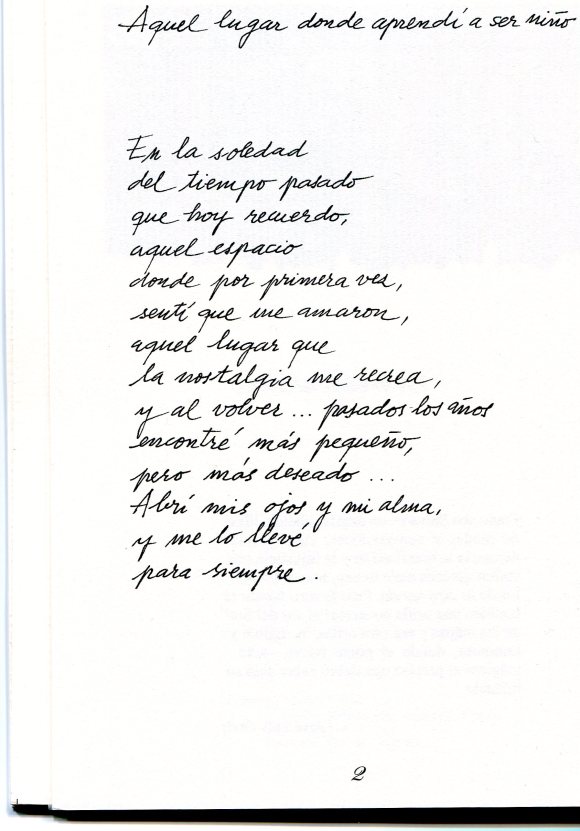 Aquel lugar donde aprendí a ser niño
En la soledad
del tiempo pasado
que hoy recuerdo,
aquel espacio
donde por primera vez,
sentí que me amaron,
aquel lugar que
la nostalgia me recrea,
y al volver ... pasados los años
encontré más pequeño,
pero más deseado ...
Abrí mis ojos y mi alma,
y me lo llevé
para siempre.
2